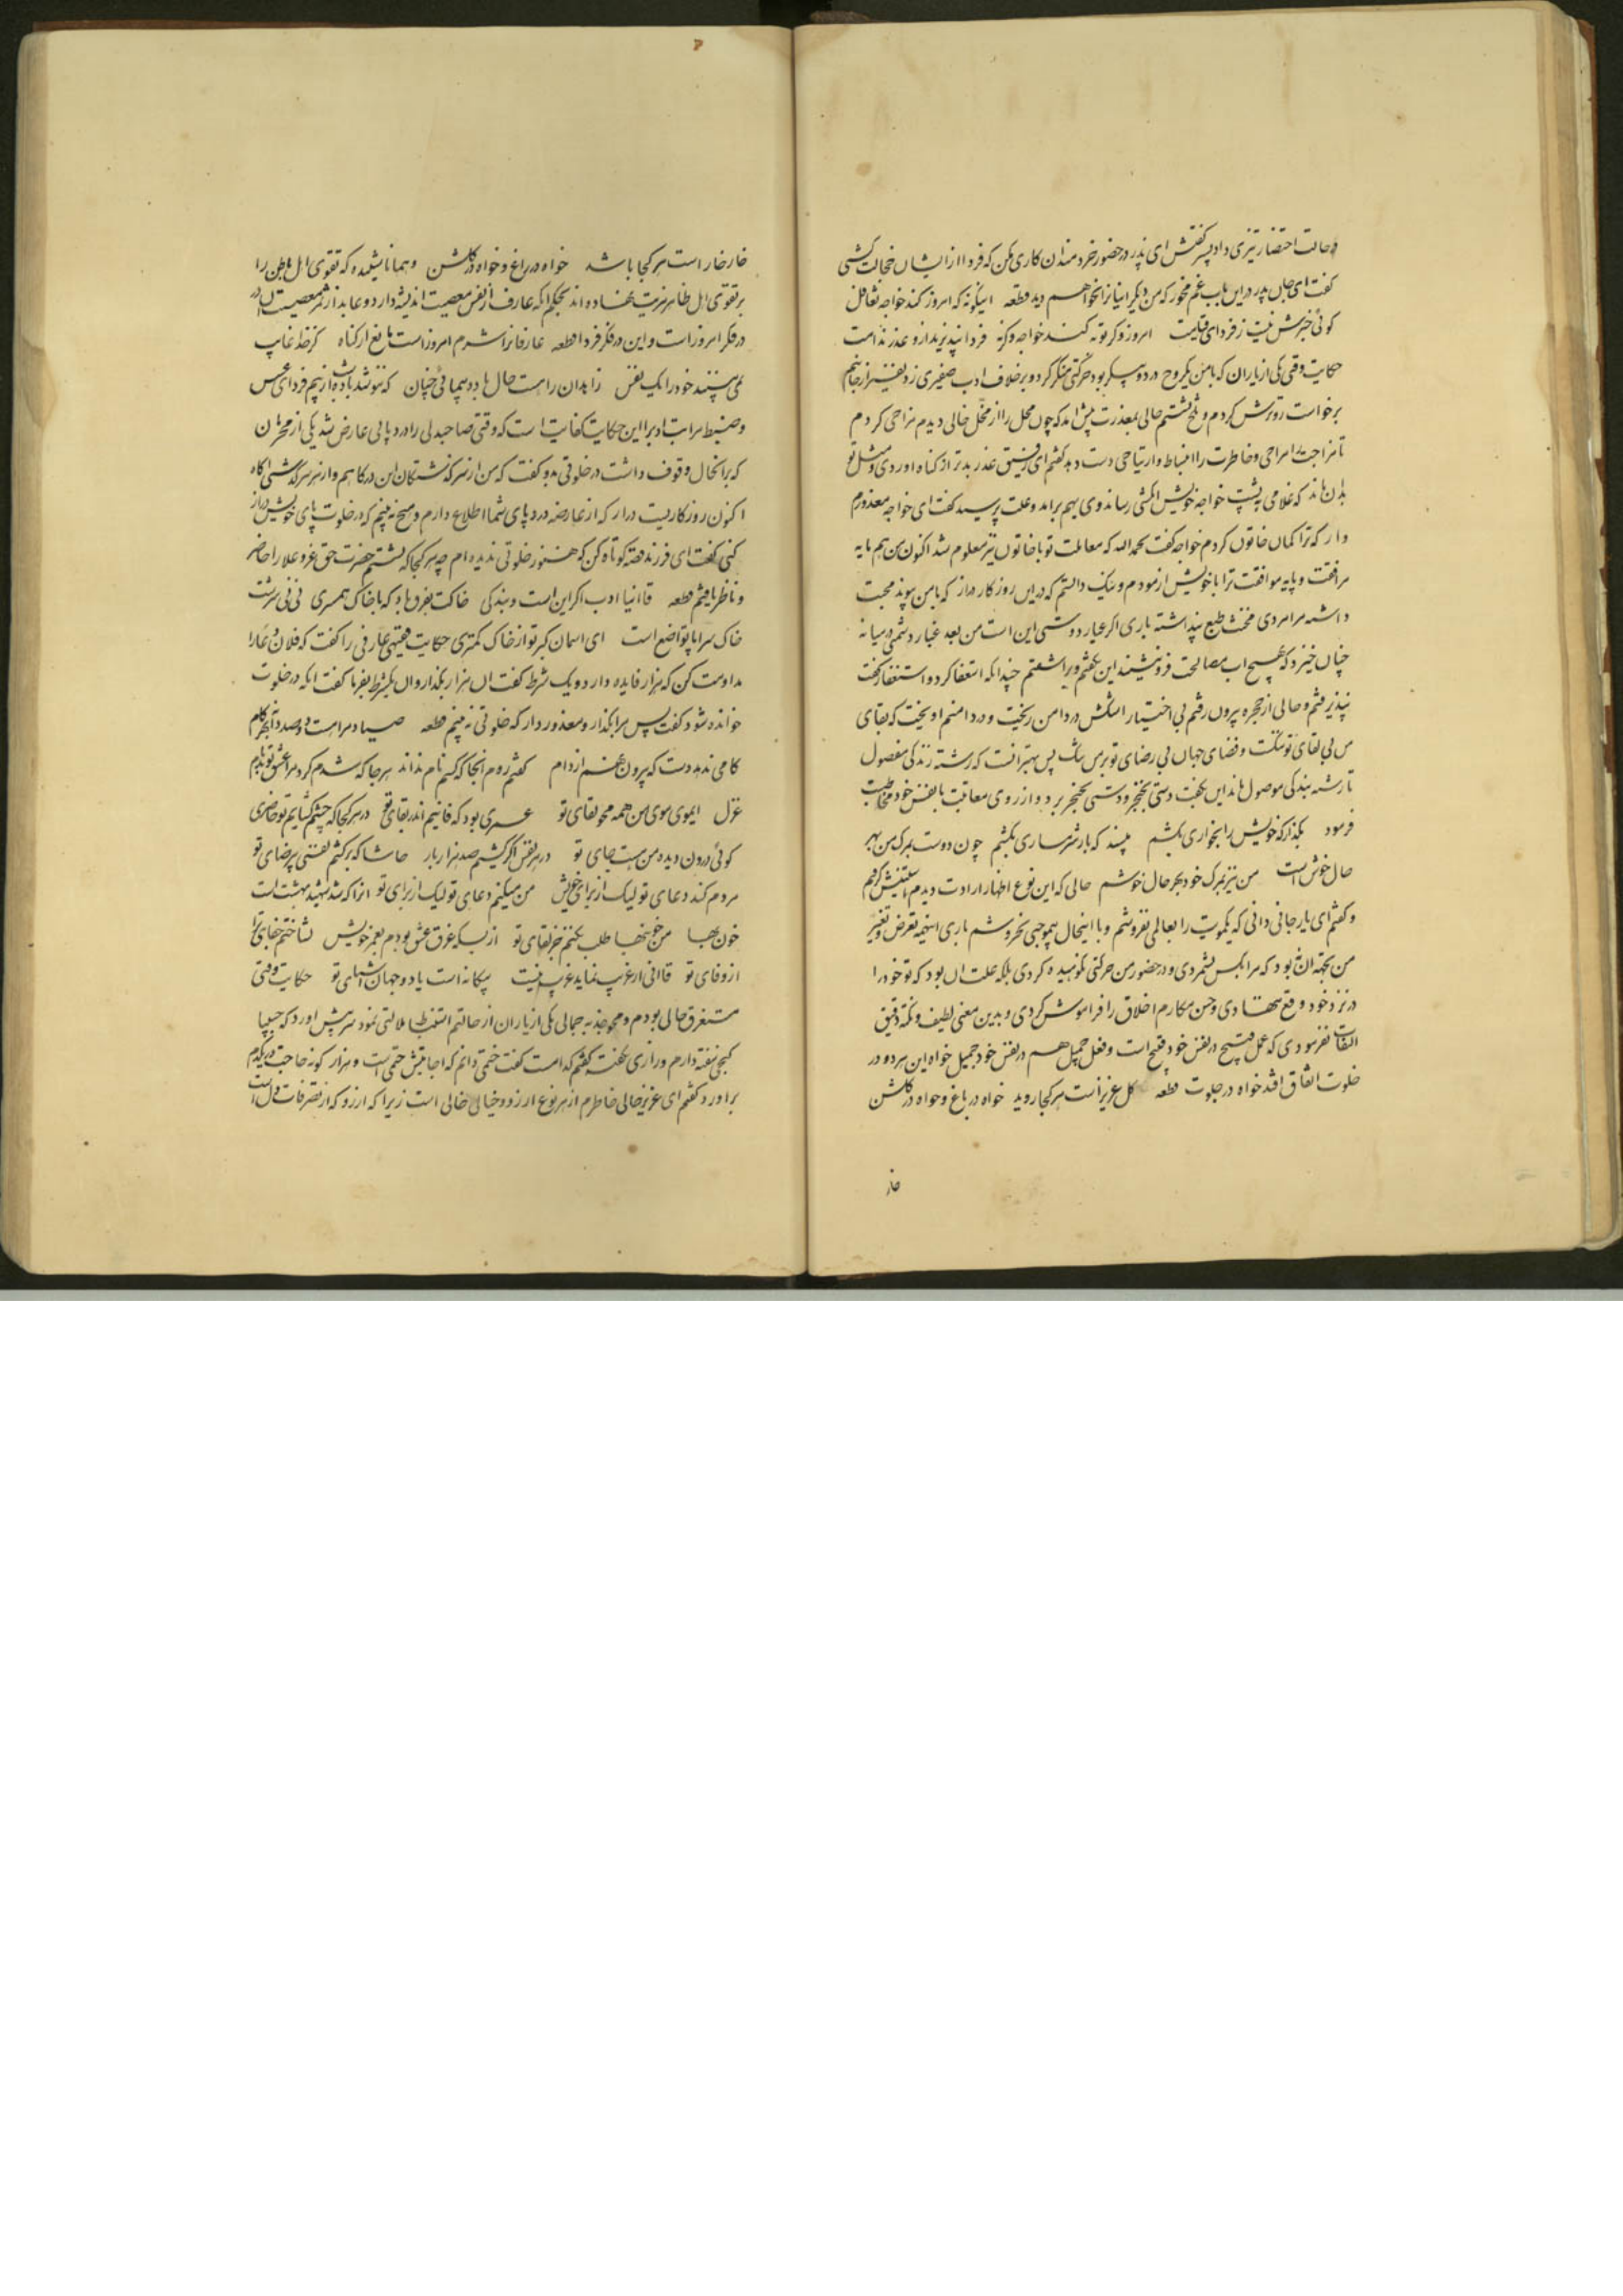 در حالت احتضار تیزی داد پسر گفتش ای پدر در حضور خردمندان کاری مکن که فردا از ایشان خجالت کشی
گفت ای جان پدر در این باب غم مخور که من دیگر اینانرا نخواهم دید قطعه اینگونه که امروز کند خواجه تغافل
گوئی خبرش نیست ز فردای قیامت امروز وگر توبه کند خواجه وگرنه فردا نپذیرند ازو عذر ندامت
حکایت وقتی یکی از یاران که با من یکروح در دو پیکر بود حرکتی منکر کرد و برخلاف ادب صفیری زد بتغیر از جایم
برخواست رو ترش کردم و تلخ نشستم حالی بمعذرت پیش آمد که چون محل را از مخل خالی دیدم مزاحی کردم
تا مزاجت را مراحی و خاطرت را انبساط و ارتیاحی دست دهد گفتم ای رفیق عذر بدتر از گناه اوردی و مثل تو
بدان ماند که غلامی به پشت خواجه خویش انگشتی رساند وی بهم برامد و علت پرسید گفت ای خواجه معذورم
دار که ترا گمان خاتون کردم خواجه گفت بحمدالله که معاملت تو با خاتون نیز معلوم شد اکنون من هم مایه
مرافقت و پایه موافقت ترا با خویش ازمودم و نیک دانستم که در این روزگار دراز که با من پیوند محبت
داشته مرا مردی مخنث طبع پنداشته باری اگر عیار دوستی این است من بعد غبار دشمنی در میانه
چنان خیزد که به هیچ آب مصالحت فرو ننشیند این بگفتم و براشفتم چندانکه استعفا کرد و استغفار گفت
نپذیرفتم و حالی از حجره بیرون رفتم بی اختیار اشکش در دامن ریخت و در دامنم اویخت که بقای
من بی لقای تو تنگست و فضای جهان بی رضای تو بر من تنگ پس بهتر انست که رشته زندگی مفصول
تا رشته بندگی موصول ماند این بگفت دستی بخنجر و دستی بحنجر برد و از روی معاتبت با نفس خود مخاطبت
فرمود بگذار که خویش را بخواری بکشم مپسند که بار شرمساری بکشم چون دوست بمرگ من بهر
حال خوش است من نیز بمرگ خود بهر حال خوشم حالی که این نوع اظهار ارادت دیدم استینش گرفتم
و گفتم ای یار جانی دانی که یکمویت را بعالمی نفروشم و با اینحال بیموجبی نخروشم باری اینهمه تعرض و تغییر
من بجهة ان نه بود که مرا بکس نشمردی و در حضور من حرکتی نکوهیده کردی بلکه علت ان بود که تو خود را
در نزد خود وقع ننهادی و حسن مکارم اخلاق را فراموش کردی و بدین معنی لطیف و نکته دقیق
التفات نفرمودی که عمل قبیح در نفس خود قبیح است و فعل جمیل هم در نفس خود جمیل خواه این هر دو در
خلوت اتفاق افتد خواه در جلوت قطعه گل عزیز است هر کجا روید خواه در باغ و خواه در گلشن
خار
خار خار است هر کجا باشد خواه در راغ و خواه در گلشن و همانا نشنیده که تقوی اهل باطن را
بر تقوی اهل ظاهر مزیت نهاده اند بحکم انکه عارف از نفس معصیت اندیشه دارد و عابد از ثمر معصیت ان
در فکر امروز است و این در فکر فردا قطعه عارفانرا شرم امروز است مانع از گناه کز خدا غایب
نمی بینند خود را یک نفس زاهدان را هست حال باده پیمائی چنان که ننوشد باده از بیم فردای عسس
و ضبط مراتب ادب را این حکایت کفایت است که وقتی صاحبدلی را درد پائی عارض شد یکی از محرمان
که بر انحال وقوف داشت در خلوتی بدو گفت که من از سرگذشتگان این درگاهم و از سر سرگذشتی اگاه
اکنون روزگاریست دراز که از عارضه درد پای شما اطلاع دارم و هیچ نه بینم که در خلوت پای خویش دراز
کنی گفت ای فرزند قصه کوتاه کن که هنوز خلوتی ندیده ام چه هر کجا که نشستم حضرت حق عز و علا را حاضر
و ناظر یافتم قطعه قاآنیا ادب اگر این است و بندگی خاکت بفرق باد که با خاک همسری نی نی سرشت
خاک سراپا تواضع است ای اسمان کبر تو از خاک کمتری حکایت فقیهی عارفی را گفت که فلان دعا را
مداومت کن که هزار فایده دارد و یک شرط گفت ان هزار بگذار و ان یکشرط بفرما گفت انکه در خلوت
خوانده شود گفت پس مرا بگذار و معذور دار که خلوتی نه بینم قطعه صیاد مراست و صد دام بهر گام
گامی ندهد دست که بیرون نهم از دام گفتم روم انجا که کسم نام نداند هر جا که شدم کرد مرا عشق تو بدنام
غزل ایموی موی من همه محو بقای تو عمری بود که فانیم اندر بقای تو در هر کجا که چشم گشایم تو حاضری
گوئی درون دیده من هست جای تو در هر نفس اگر کشیم صد هزار بار حاشا که برکشم نفسی بی رضای تو
مردم کند دعای تو لیک از برای خویش من میکنم دعای تو لیک از برای تو انرا که شد شهید بهشت است
خون بها من خونبها طلب نکنم جز لقای تو از بسکه غرق عشق بودم بعمر خویش نشناختم جفای ترا
از وفای تو قاآنی ار غریب نماید غریب نیست بیگانه است با دو جهان اشنای تو حکایت وقتی
مستغرق حالی بودم و محو جذبه جمالی یکی از یاران از حالتم استنباط ملالتی نمود سر پیش اورد که حبیبا
گنجی نهفته دارم و رازی نگفته گفتم کدامست گفت ختمی دانم که اجابتش حتمی است و هزار گونه حاجت در یکدم
براورد گفتم ای عزیز حالی خاطرم از هر نوع ارزو و خیالی خالی است زیرا که ارزو که از تصرفات دل است